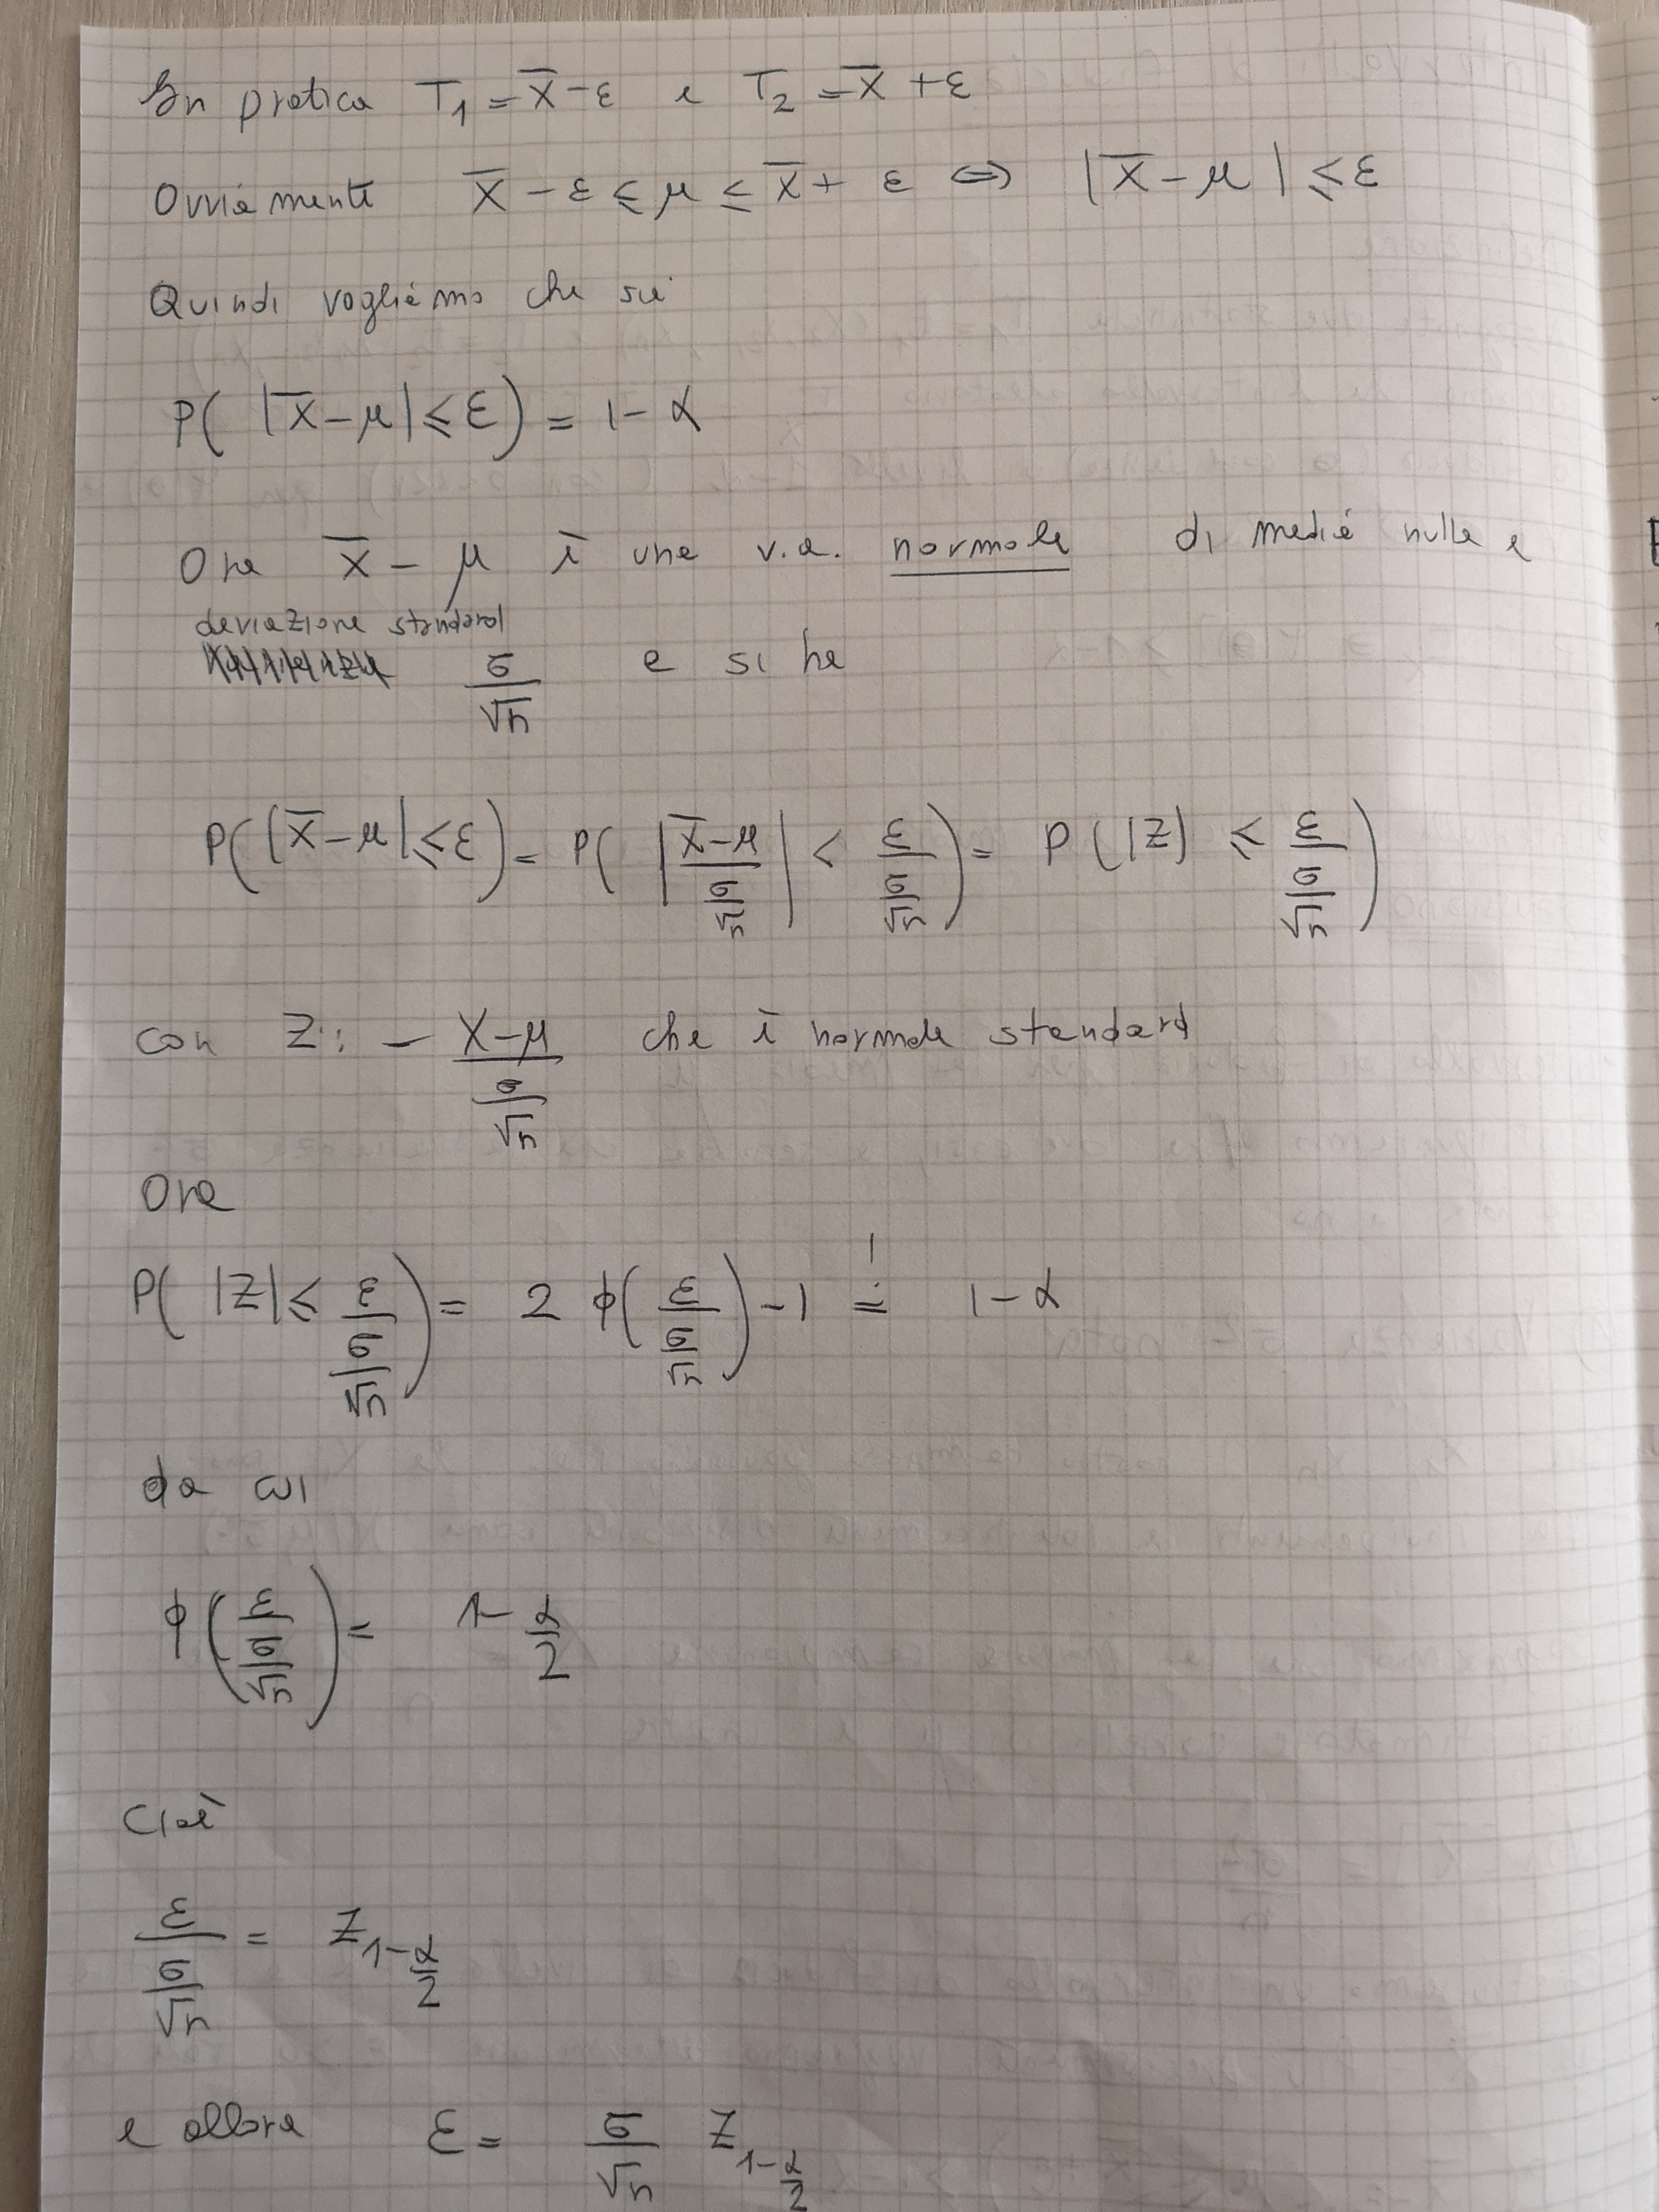 In pratica T₁ = X̄ - ε e T₂ = X̄ + ε
Ovviamente X̄ - ε ≤ μ ≤ X̄ + ε ⇔ |X̄ - μ| ≤ ε
Quindi vogliamo che sia
P( |X̄ - μ| ≤ ε ) = 1 - α
Ora X̄ - μ è una v.a. normale di media nulla e
deviazione standard
σ/√n e si ha
P( |X̄ - μ| ≤ ε ) = P( |(X̄ - μ)/(σ/√n)| < ε/(σ/√n) ) = P( |Z| ≤ ε/(σ/√n) )
con Z := (X - μ)/(σ/√n) che è normale standard
Ora
P( |Z| ≤ ε/(σ/√n) ) = 2 ϕ( ε/(σ/√n) ) - 1 =! 1 - α
da cui
ϕ( ε/(σ/√n) ) = 1 - α/2
Cioè
ε/(σ/√n) = Z_{1-α/2}
e allora ε = σ/√n Z_{1-α/2}